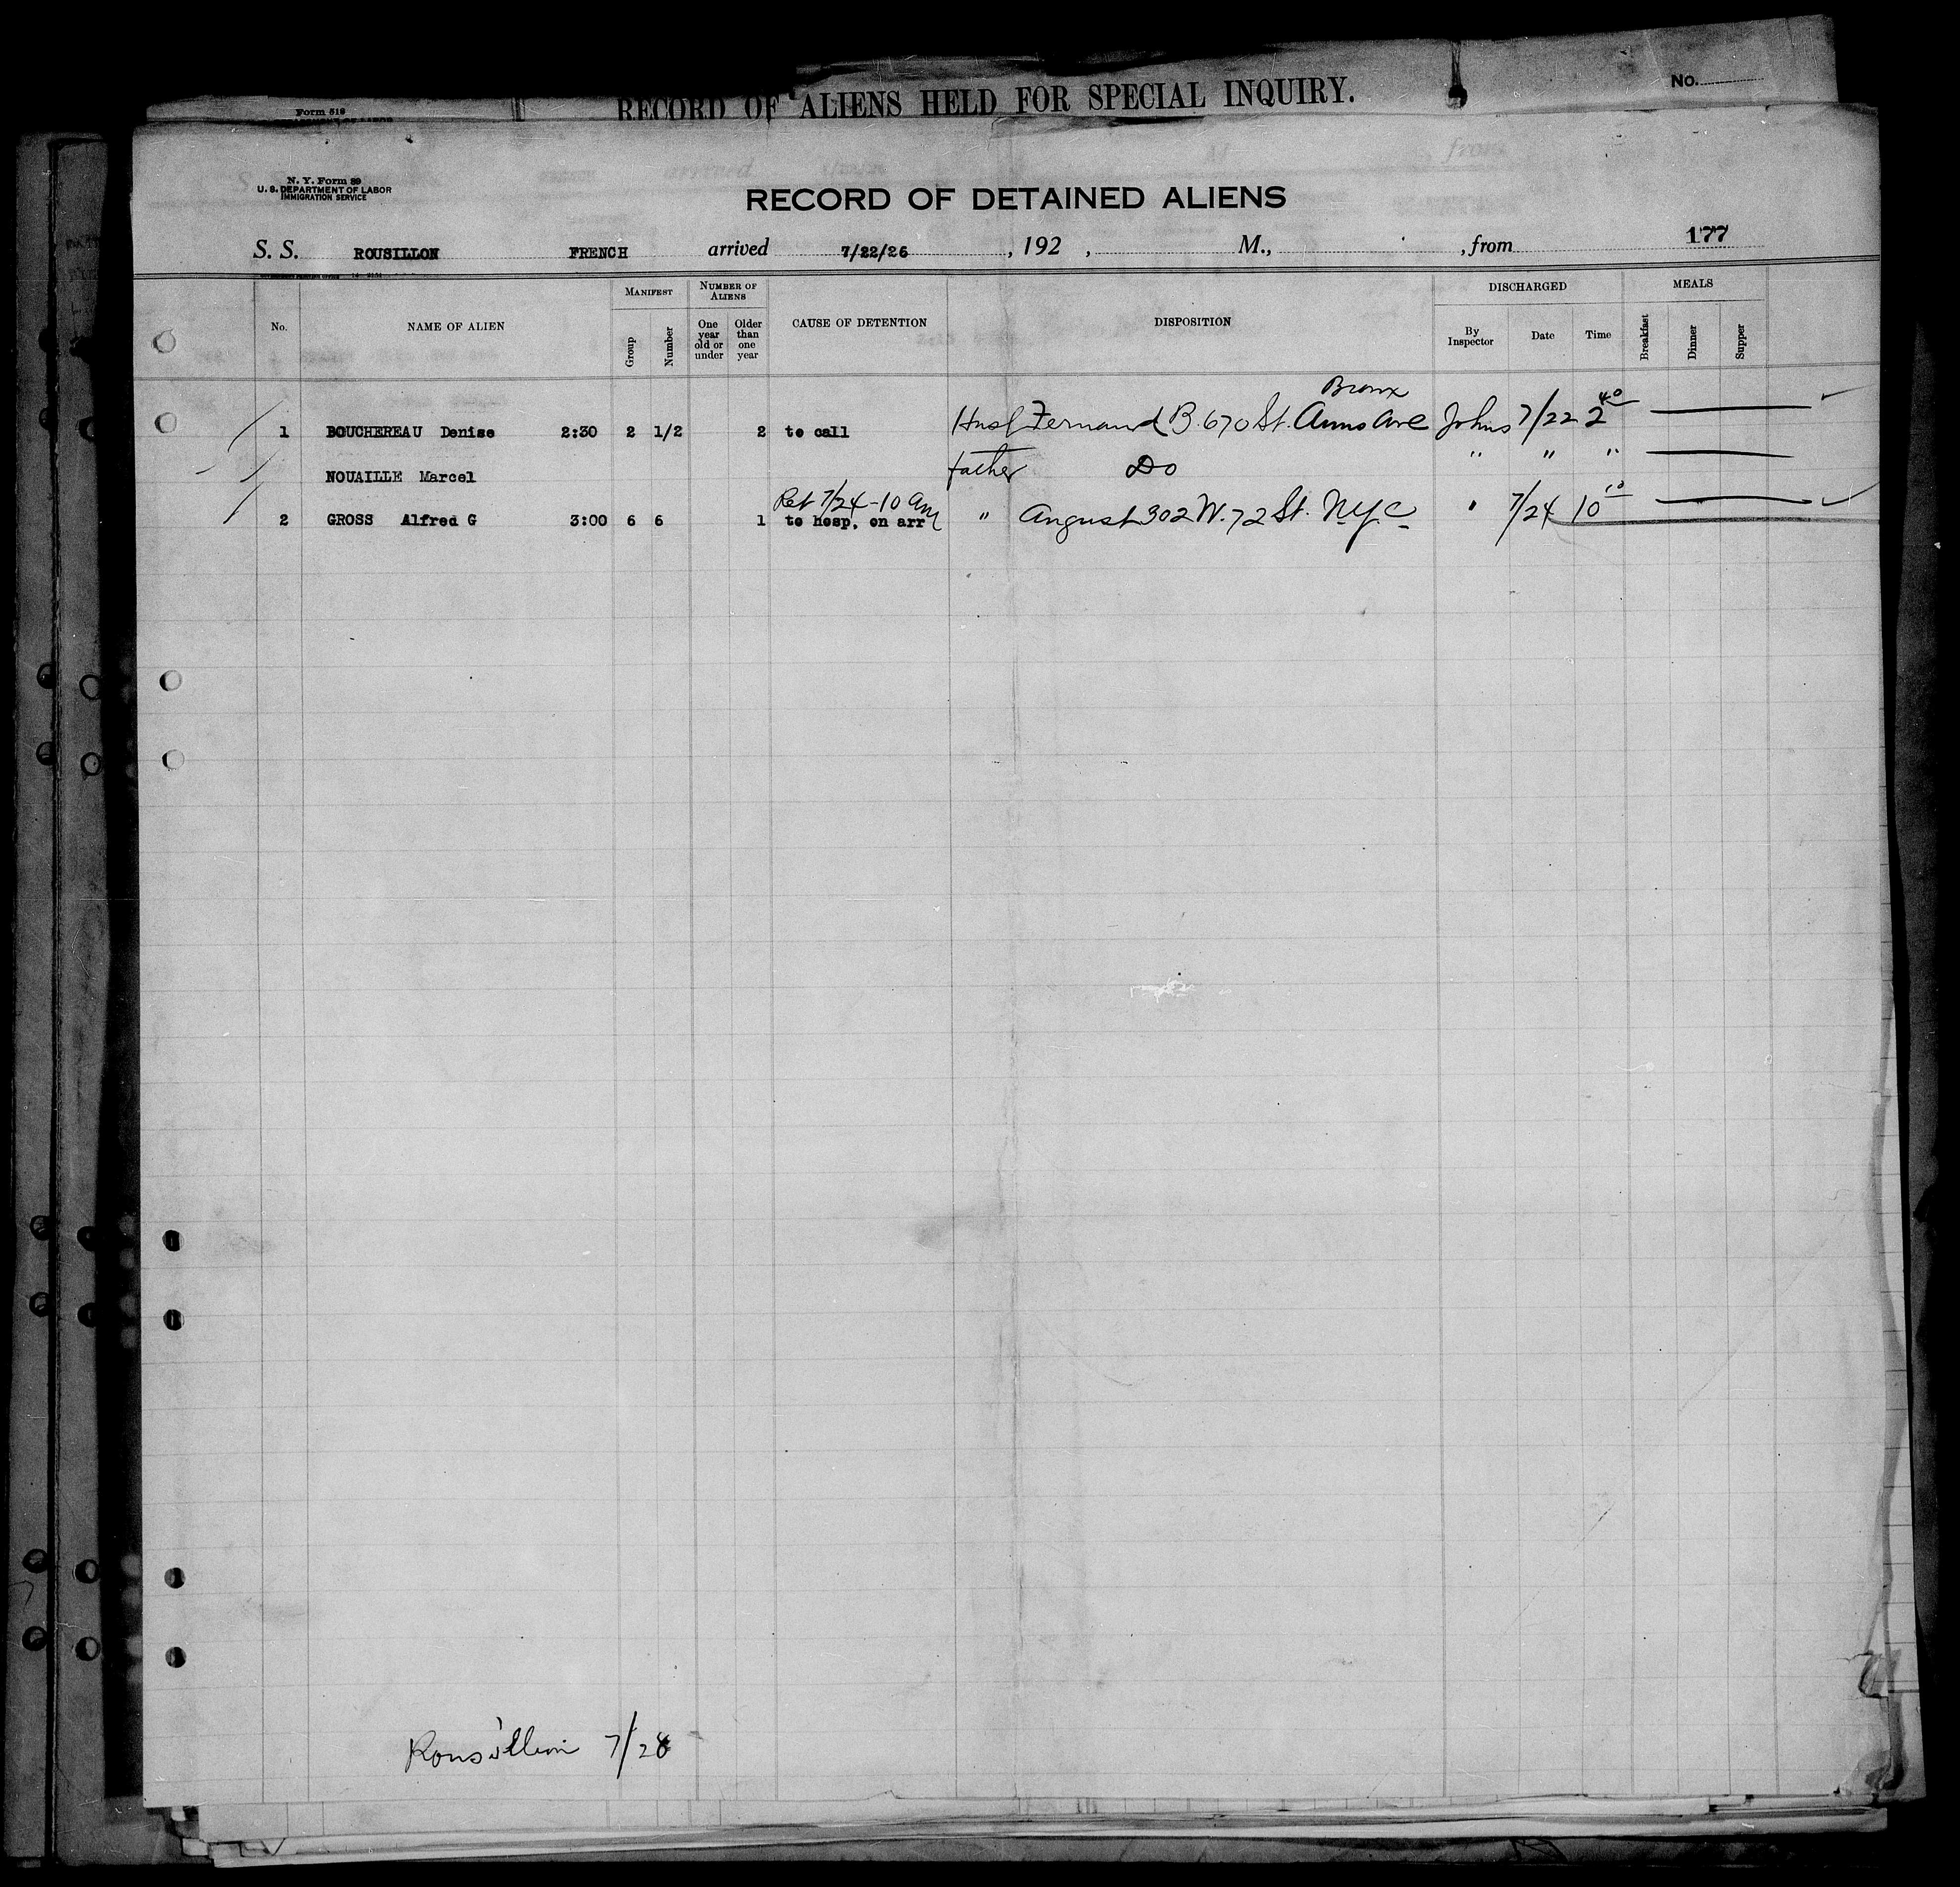 No.
RECORD OF ALIENS HELD FOR SPECIAL INQUIRY.
Form 519
N. Y. Form 89
U. S. DEPARTMENT OF LABOR
IMMIGRATION SERVICE
RECORD OF DETAINED ALIENS
177
S. S. ROUSILLON FRENCH arrived 7/22/26 , 192 , M., , from
No. NAME OF ALIEN MANIFEST Group Number NUMBER OF ALIENS One year old or under Older than one year CAUSE OF DETENTION DISPOSITION DISCHARGED By Inspector Date Time MEALS Breakfast Dinner Supper
Bronx
1 BOUCHEREAU Denise 2:30 2 1/2 2 to call Husb Fernand B. 670 St. Anns Ave Johns 7/22 2 40
NOUAILLE Marcel father Do " " "
Ret 7/24-10 am
2 GROSS Alfred G 3:00 6 6 1 to hosp. on arr " August 302 W. 72 St. N.Y.C " 7/24 10 10
Rousillon 7/28